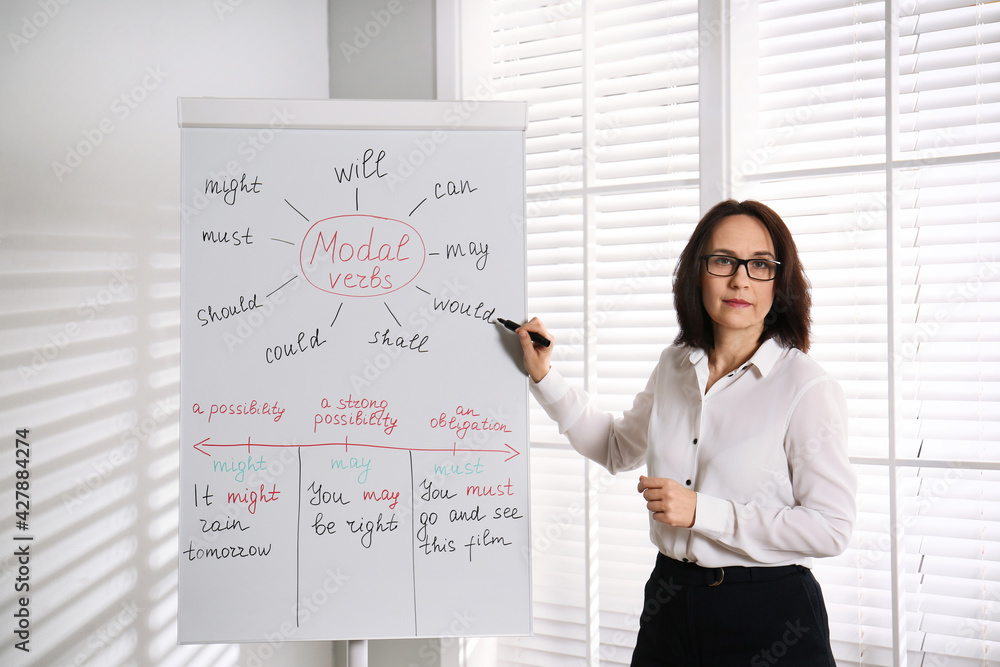 will
might
can
must
Modal
verbs
may
should
would
could
shall
a possibility
a strong
possibility
an
obligation
might
may
must
It might
rain
tomorrow
You may
be right
You must
go and see
this film
Adobe Stock | #427884274